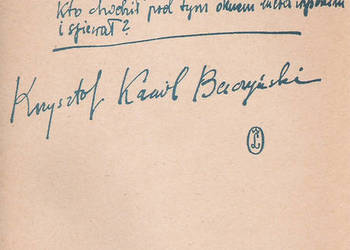 Kto chodził pod tym oknem
i śpiewał?
Krzysztof Kamil Baczyński